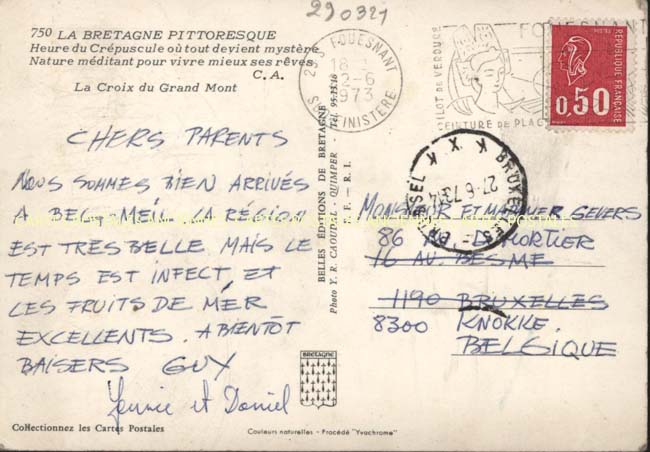 290321
750 LA BRETAGNE PITTORESQUE
Heure du Crépuscule où tout devient mystère
Nature méditant pour vivre mieux ses rêves
C. A.
La Croix du Grand Mont
CHERS PARENTS
NOUS SOMMES BIEN ARRIVÉS
A BEG-MEIL LA RÉGION
EST TRES BELLE MAIS LE
TEMPS EST INFECT, ET
LES FRUITS DE MER
EXCELLENTS. A BIENTÔT
BAISERS GUY
Yannie et Daniel
Collectionnez les Cartes Postales
BELLES ÉDITIONS DE BRETAGNE
Photo Y. R. CAOUDAL - QUIMPER - Tél. 95.15.16
I. F. - R. I.
BRETAGNE
Couleurs naturelles - Procédé "Yvachrome"
FOUESNANT
18
2-6
1973
FINISTERE
FOUESNANT
ILOT DE VERDURE
CEINTURE DE PLAG
REPUBLIQUE FRANÇAISE
0,50
BRUXELLES - BRUSSEL
X
27-6-73
MONSIEUR ET MADAME SEVERS
86 DUMORTIER
16 AV. BESME
1190 BRUXELLES
8300 KNOKKE.
BELGIQUE